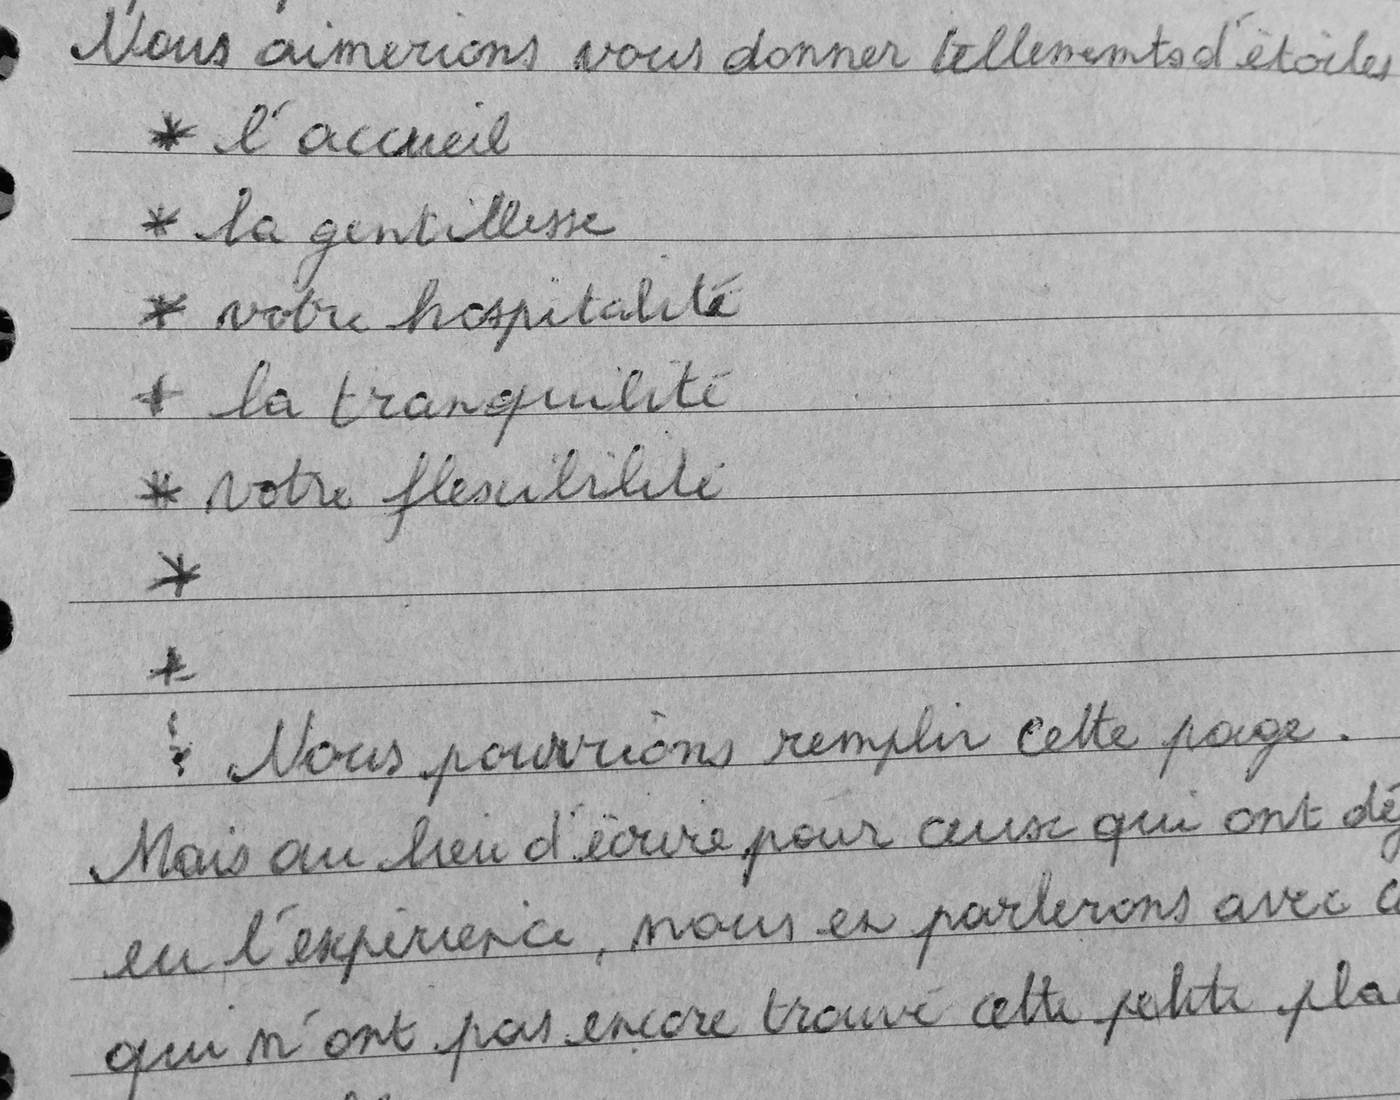 Nous aimerions vous donner tellements d'étoiles
* l'accueil
* la gentillesse
* votre hospitalité
* la tranquilité
* votre flexibilité
*
*
Nous pourrions remplir cette page.
Mais au lieu d'écrire pour ceux qui ont dé
eu l'expérience, nous en parlerons avec c
qui n'ont pas encore trouvé cette petite pla